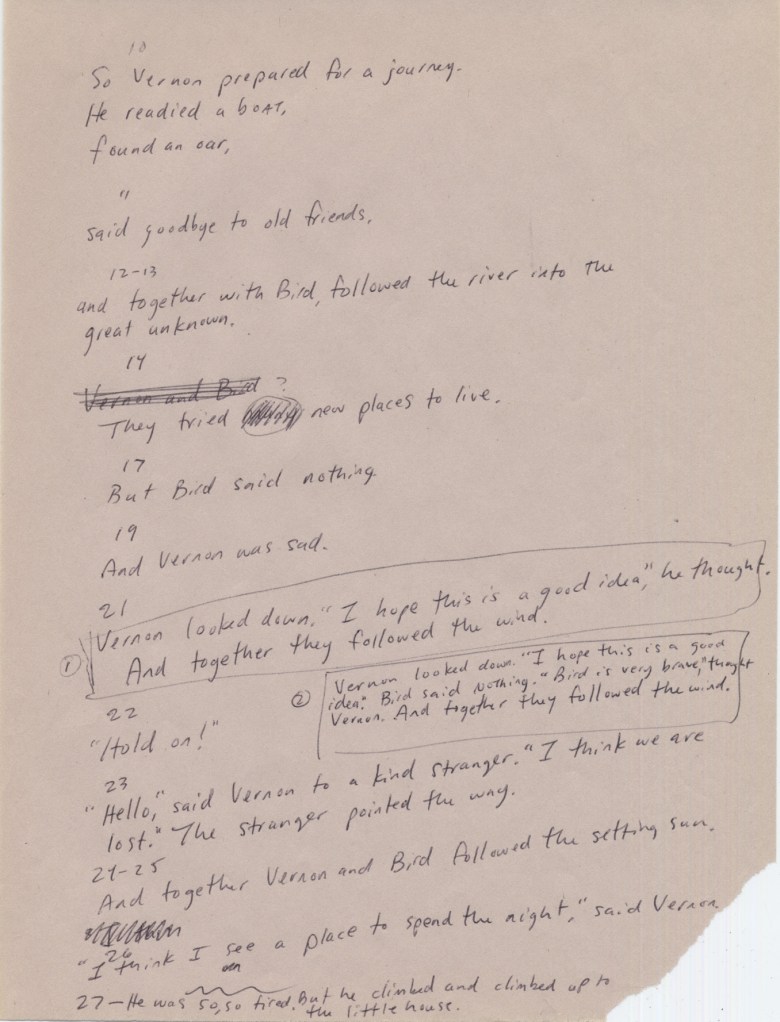 10
So Vernon prepared for a journey.
He readied a boat,
found an oar,
11
said goodbye to old friends,
12-13
and together with Bird, followed the river into the
great unknown.
14
Vernon and Bird ?
They tried new places to live.
17
But Bird said nothing.
19
And Vernon was sad.
21
① Vernon looked down. "I hope this is a good idea," he thought.
And together they followed the wind.
② Vernon looked down. "I hope this is a good
idea." Bird said nothing. "Bird is very brave," thought
Vernon. And together they followed the wind.
22
"Hold on!"
23
"Hello," said Vernon to a kind stranger. "I think we are
lost." The stranger pointed the way.
24-25
And together Vernon and Bird followed the setting sun.
26
"I think I see a place to spend the night," said Vernon.
27-He was so, so tired. But he climbed and climbed up to
the little house.